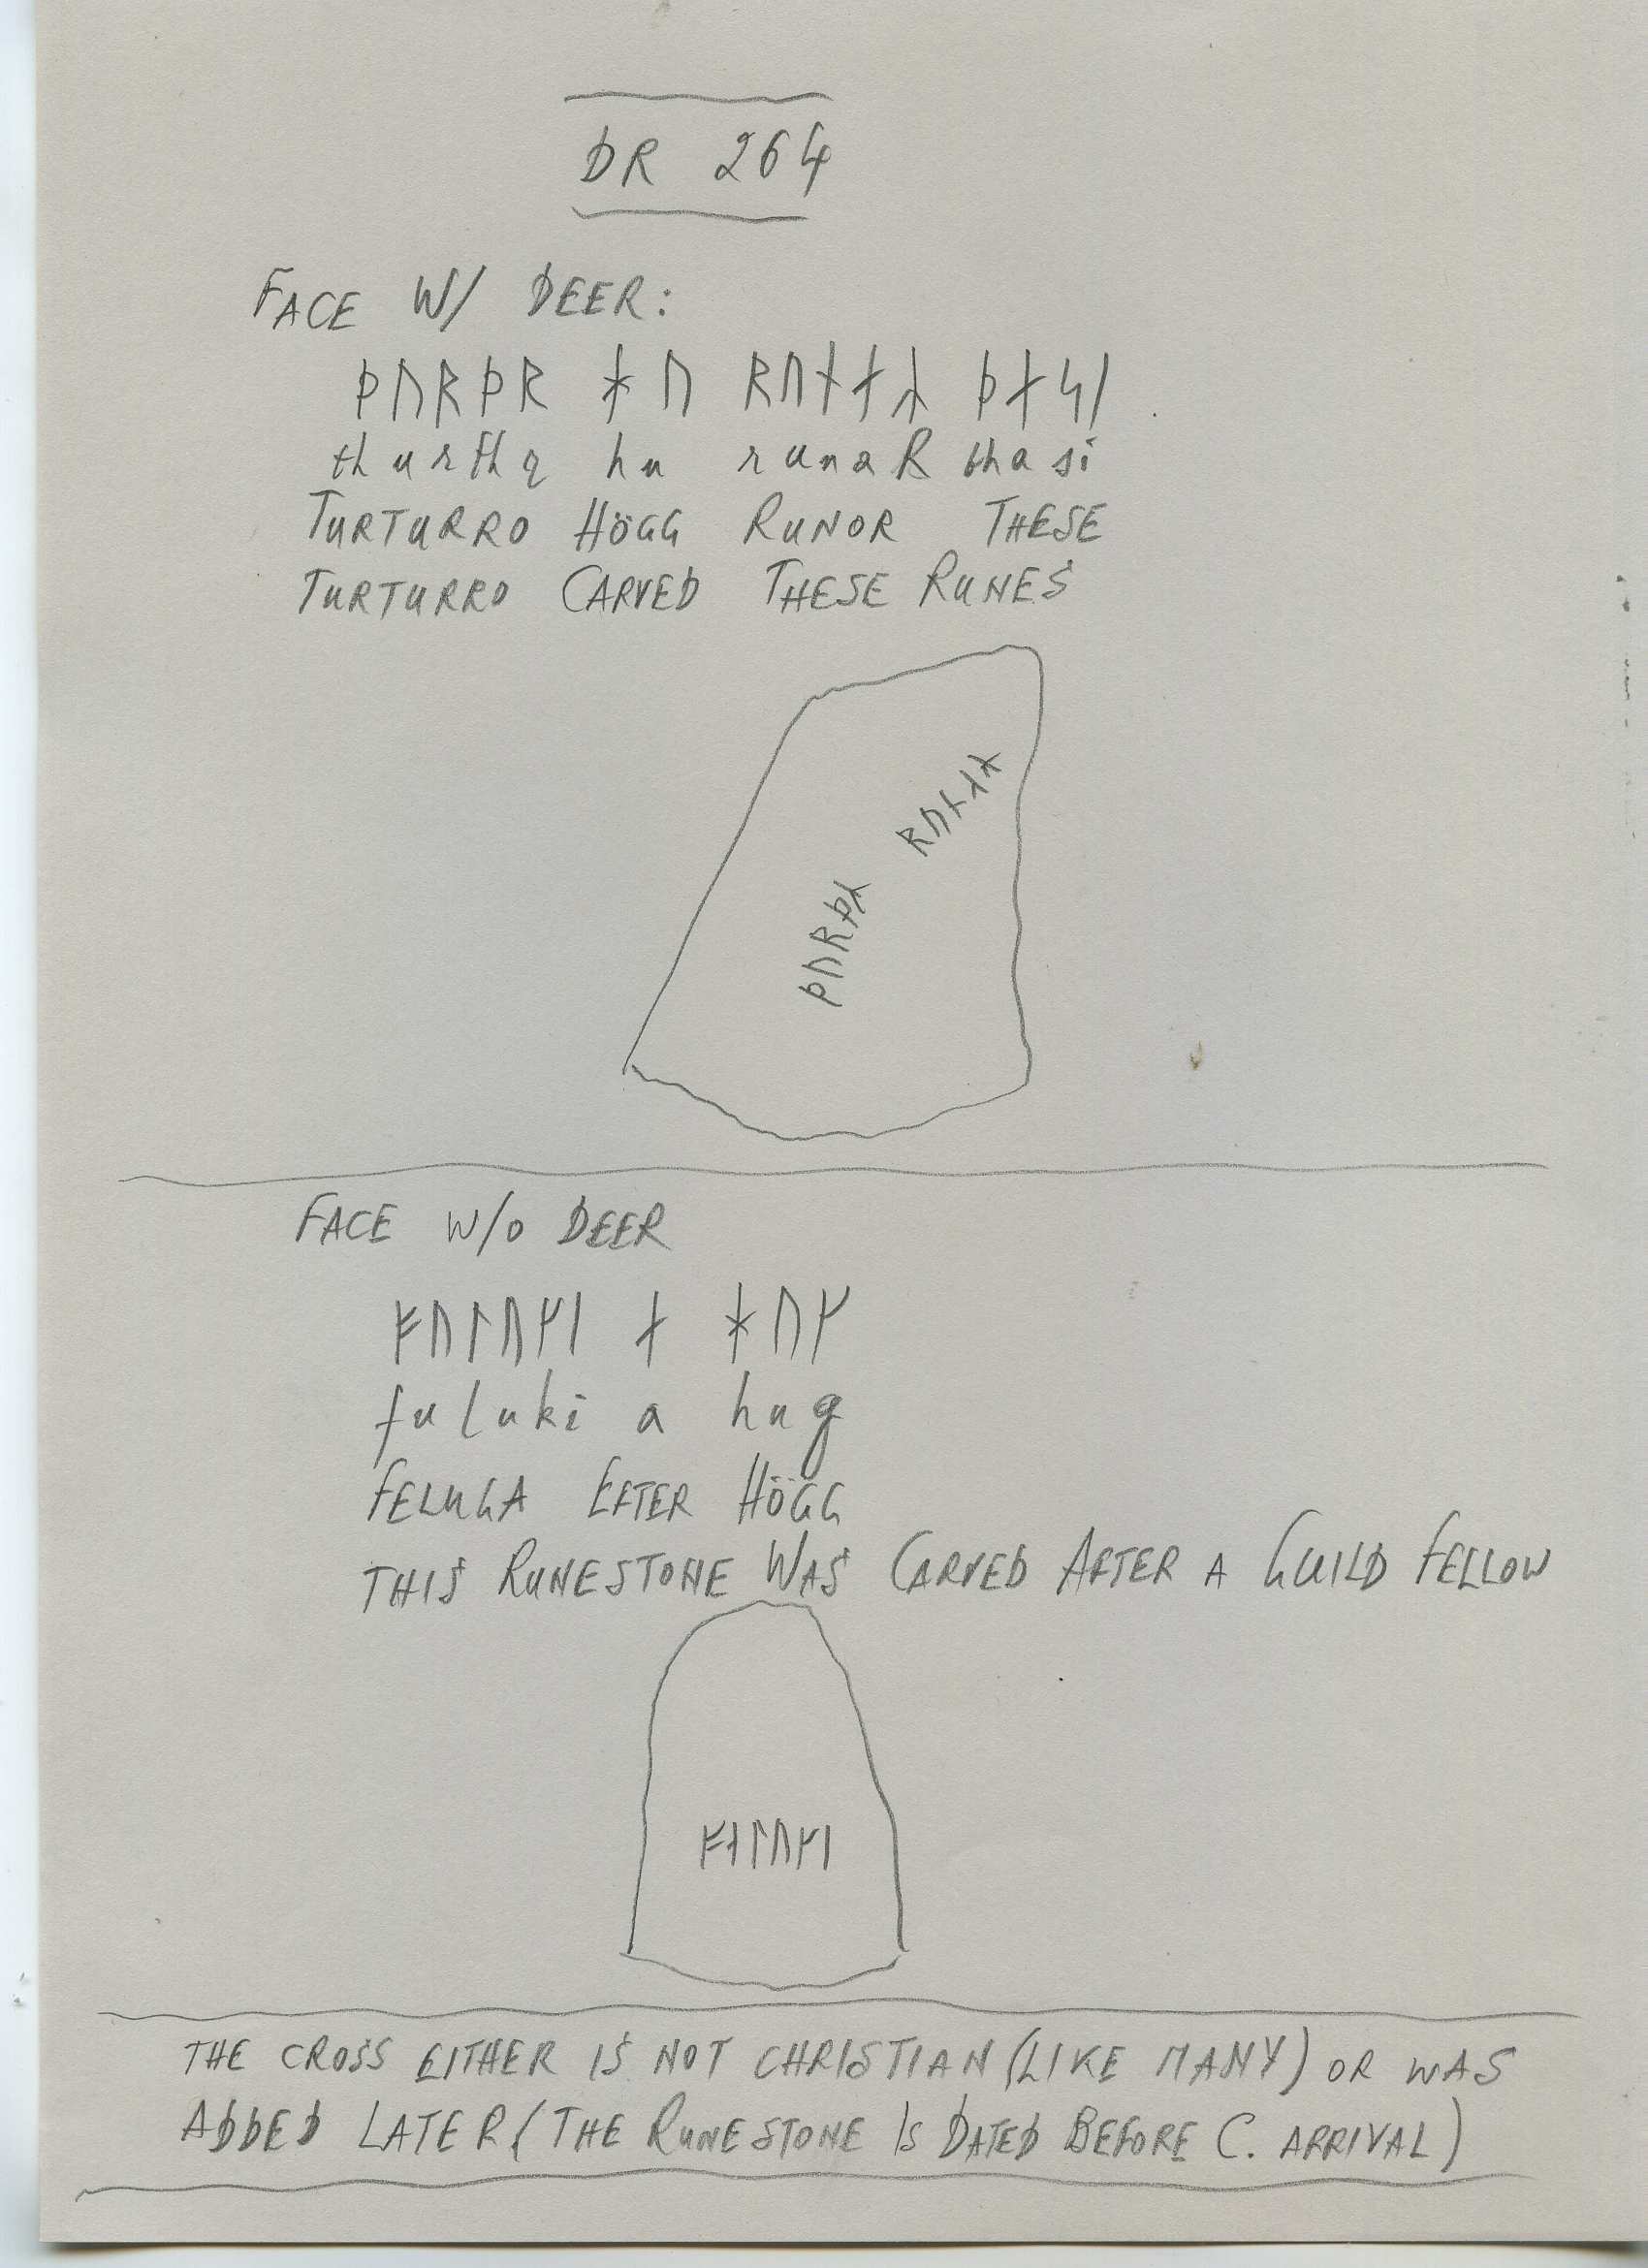 DR 264
FACE W/ DEER:
ᚦᚢᚱᚦᚱ ᚼᚢ ᚱᚢᚾᛅᛦ ᚦᛅᛋᛁ
thurthr hu runaR thasi
TURTURRO HÖGG RUNOR THESE
TURTURRO CARVED THESE RUNES
ᚱᚢᚾᛅᛦ
ᚦᚢᚱᚦᛦ
FACE W/O DEER
ᚠᚢᛚᚢᚴᛁ ᛅ ᚼᚢᚴ
fuluki a hug
FELUGA EFTER HÖGG
THIS RUNESTONE WAS CARVED AFTER A GUILD FELLOW
ᚠᛅᛚᚢᚴᛁ
THE CROSS EITHER IS NOT CHRISTIAN (LIKE MANY) OR WAS
ADDED LATER (THE RUNESTONE IS DATED BEFORE C. ARRIVAL)